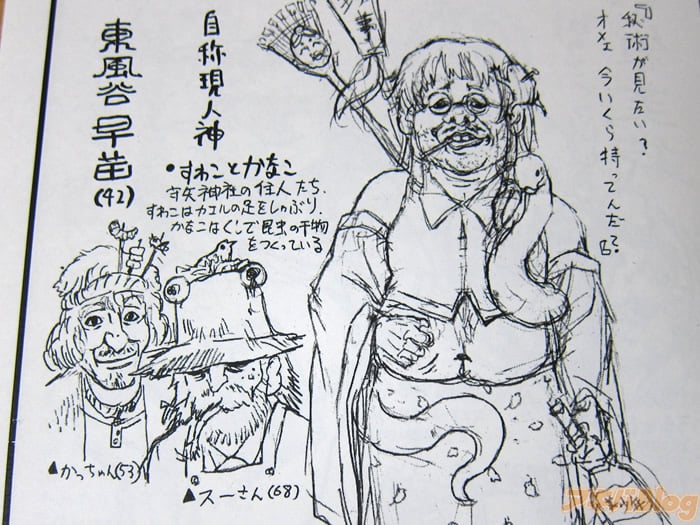 『秘術が見たい?
オメェ 今いくら持ってんだ?』
自称現人神
東風谷 早苗
(42)
・すわことかなこ
守矢神社の住人たち.
すわこはカエルの足をしゃぶり.
かなこはくしで昆虫の干物
をつくっている
▲かっちゃん(53)
▲スーさん(68)
アキバBlog